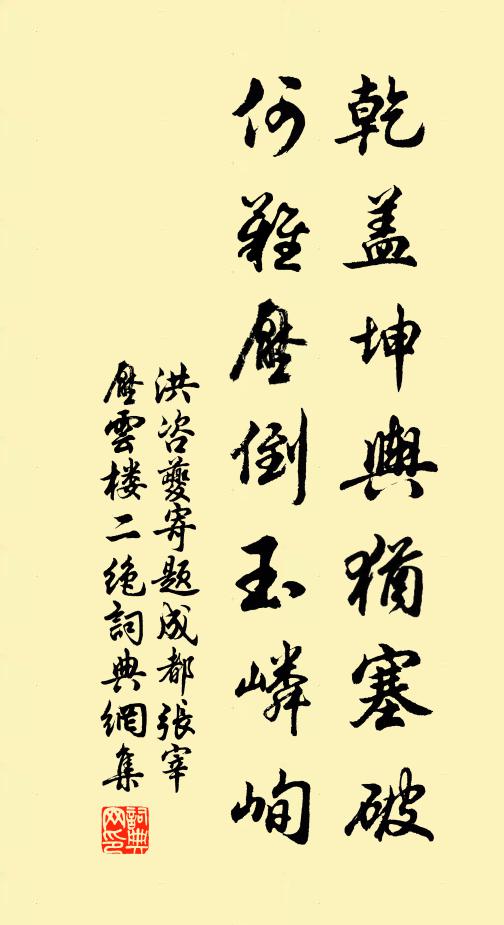 乾盖坤輿猶塞破
何難壓倒玉嶙峋
洪咨夔寄題成都張宰
壓雲楼二絶詞典網集
詞典网印